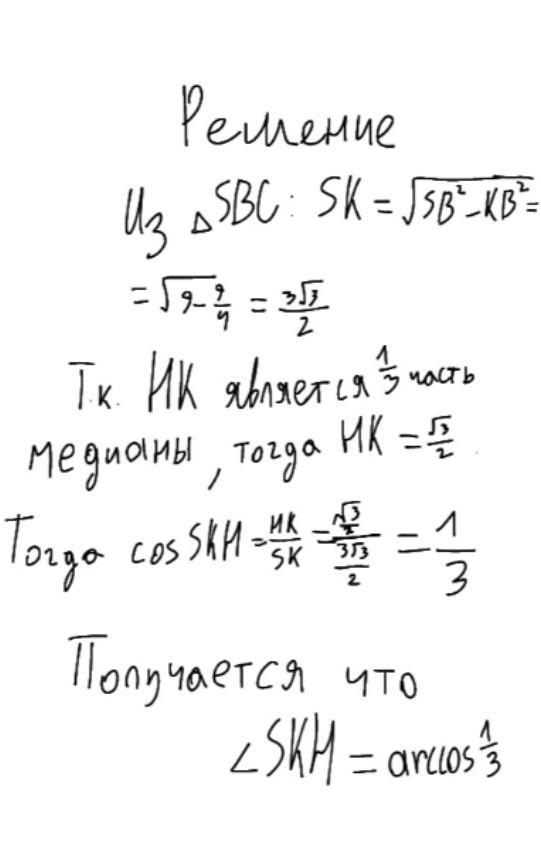 Решение
Из △SBC: SK = √(SB² - KB²) =
= √(9 - 9/4) = 3√3/2
Т.к. HK является 1/3 часть
медианы, тогда HK = √3/2
Тогда cos SKH = HK/SK = (√3/2)/(3√3/2) = 1/3
Получается что
∠SKH = arccos 1/3